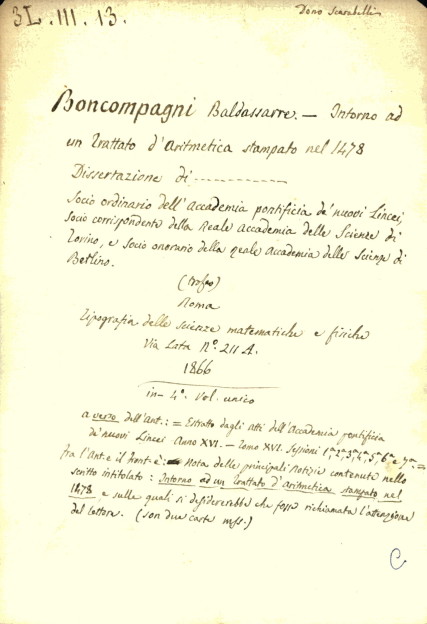 3L.III.13.
Dono Scarabelli
Boncompagni Baldassarre. — Intorno ad
un Trattato d'Aritmetica stampato nel 1478
Dissertazione di ------------
Socio ordinario dell'Accademia pontificia de' nuovi Lincei,
Socio corrispondente della Reale Accademia delle Scienze di
Torino, e Socio onorario della reale Accademia delle Scienze di
Berlino.
(trofeo)
Roma
Tipografia delle Scienze matematiche e fisiche
Via Lata N.º 211 A.
1866
in-4.º Vol. unico
a verso dell'Ant.: = Estratto dagli atti dell'Accademia pontificia
de' nuovi Lincei Anno XVI. — Tomo XVI. Sessioni 1ª 2ª 3ª 4ª 5ª 6ª e 7ª =
fra l'Ant. e il front. è: = Nota delle principali Notizie contenute nello
scritto intitolato: Intorno ad un Trattato d'Aritmetica stampato nel
1478 e sulle quali si desidererebbe che fosse richiamata l'attenzione
del lettore. (son due carte mss.)
C